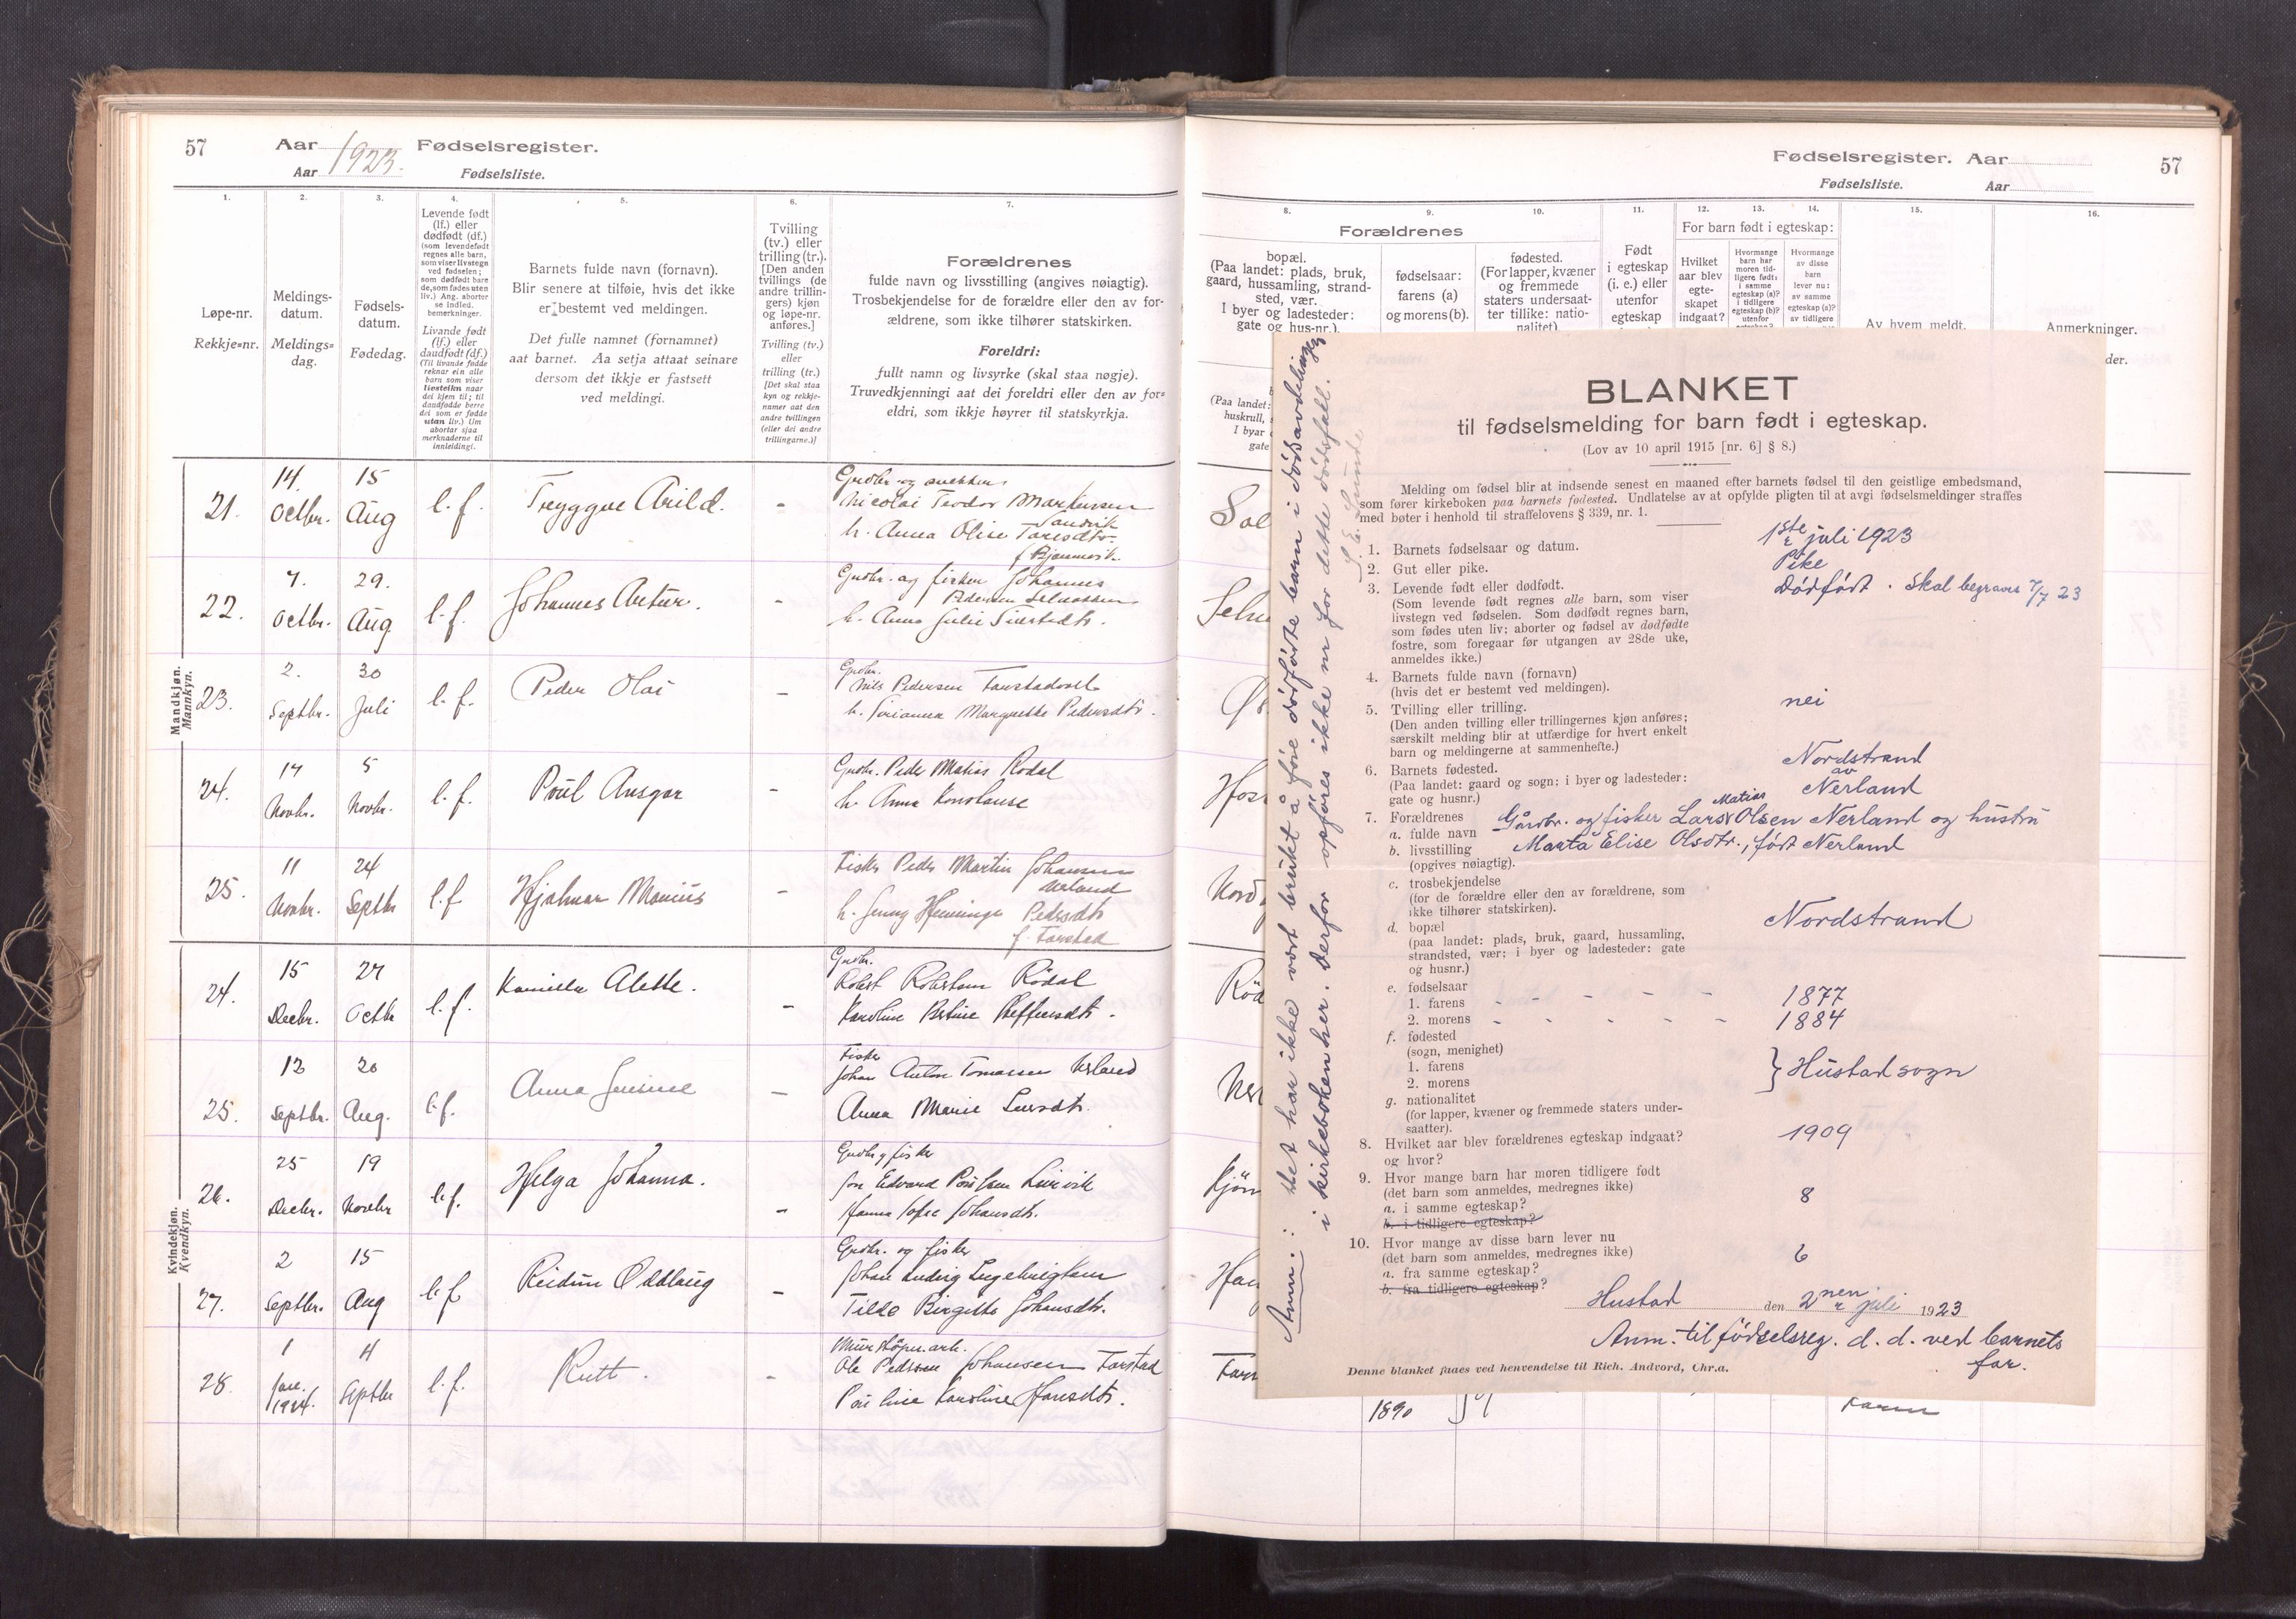 57
Aar 1923. Fødselsregister.
Aar
Fødselsliste.
1.
2.
3.
4.
5.
6.
7.
Løpe-nr.
Rekkje=nr.
Meldings-
datum.
Meldings=
dag.
Fødsels-
datum.
Fødedag.
Levende født
(lf.) eller
dødfødt (df.)
(som levendefødt
regnes alle barn,
som viser livstegn
ved fødselen;
som dødfødt bare
de, som fødes uten
liv.) Ang. aborter
se indled.
bemerkninger.
Livande født
(lf.) eller
daudfødt (df.)
(Til livande fødde
reknar ein alle
barn som viser
livsteikn naar
dei kjem til; til
daudfødde berre
dei som er fødde
utan liv.) Um
abortar sjaa
merknaderne til
innleidingi.
Barnets fulde navn (fornavn).
Blir senere at tilføie, hvis det ikke
er bestemt ved meldingen.
Det fulle namnet (fornamnet)
aat barnet. Aa setja attaat seinare
dersom det ikkje er fastsett
ved meldingi.
Tvilling
(tv.) eller
trilling (tr.).
[Den anden
tvillings (de
andre trillin-
gers) kjøn
og løpe-nr.
anføres.]
Tvilling (tv.)
eller
trilling (tr.)
[Det skal staa
kyn og rekkje-
numer aat den
andre tvillingen
(eller dei andre
trillingarne.)]
Forældrenes
fulde navn og livsstilling (angives nøiagtig).
Trosbekjendelse for de forældre eller den av for-
ældrene, som ikke tilhører statskirken.
Foreldri:
fullt namn og livsyrke (skal staa nøgje).
Truvedkjenningi aat dei foreldri eller den av for=
eldri, som ikkje høyrer til statskyrkja.
Mandkjøn.
Mannkyn.
21. 14. Octbr. 15 Aug l. f. Tryggve Arild. -
Nicolai Teodor Martinsen
Sandvik
h. Anna Olise
22. 7. Octbr. 29. Aug l. f. Johannes Artur. -
Gudbr. og fisker Johannes
Pedersen
h. Anna Julie
23. 2. Septbr. 30 Juli l. f. Peder Olai -
Gudbr.
Nils Pedersen
h. Margrethe Pedersdtr.
24. 14 Novbr. 5 Novbr. l. f. Poul Ansgar -
Gudbr. Peder Matias Rødal
h. Anna Konstanse
25. 11 Novbr. 24 Septbr l. f. Hjalmar Marius -
Fisker Peder Martin Johansen
Nerland
h. Jenny Henninge Pedersdtr
f. Farstad
Kvindekjøn.
Kvendkyn.
24. 15 Decbr. 27 Octbr l. f. Kamilla Alette. -
Gudbr.
Rødal
Karoline Bertine Steffensdtr.
25. 12 Septbr. 20 Aug. l. f. Anna Jensine -
Fisker
Johan Anton Tomassen Nerland
Anna Marie Larsdtr.
26. 25 Decbr. 19 Novbr l. f. Helga Johanna. -
Gudbr og fisker
Jon Edvard Poulsen
Hanna Sofie Johansdtr.
27. 2 Septbr. 15 Aug l. f. Reidun Oddlaug -
Gudbr. og fisker
Johan Ludvig Ingebrigtsen
Tilde Birgitte Johansdtr.
28. 1 Jan. 1924. 4 Septbr l. f. Rutt. -
Ole Pedersen Johansen Farstad
Pauline Karoline Hansdtr.
Fødselsregister. Aar
57
Fødselsliste.
Aar
8.
9.
10.
11.
12.
13.
14.
15.
16.
Forældrenes
bopæl.
(Paa landet: plads, bruk,
gaard, hussamling, strand-
sted, vær.
I byer og ladesteder:
gate og hus-nr.).
fødselsaar:
farens (a)
og morens (b).
fødested.
(For lapper, kvæner
og fremmede
staters undersaat-
ter tillike: natio-
nalitet)
Født
i egteskap
(i. e.) eller
utenfor
egteskap
For barn født i egteskap:
Hvilket
aar blev
egte-
skapet
indgaat?
Hvormange
barn har
moren tid-
ligere født:
i samme
egteskap (a)?
i tidligere
egteskap (b)?
utenfor
Hvormange
av disse
barn
lever nu:
av samme
egteskap (a)?
av tidligere
Av hvem meldt.
Anmerkninger.
(Paa landet:
huskrull,
I byar
gate
1890
BLANKET
til fødselsmelding for barn født i egteskap.
(Lov av 10 april 1915 [nr. 6] § 8.)
Melding om fødsel blir at indsende senest en maaned efter barnets fødsel til den geistlige embedsmand,
som fører kirkeboken paa barnets fødested. Undlatelse av at opfylde pligten til at avgi fødselsmeldinger straffes
med bøter i henhold til straffelovens § 339, nr. 1.
1. Barnets fødselsaar og datum. 1ste juli 1923
2. Gut eller pike. Pike
3. Levende født eller dødfødt. Dødfødt. Skal begraves 7/7 23
(Som levende født regnes alle barn, som viser
livstegn ved fødselen. Som dødfødt regnes barn,
som fødes uten liv; aborter og fødsel av dødfødte
fostre, som foregaar før utgangen av 28de uke,
anmeldes ikke.)
4. Barnets fulde navn (fornavn)
(hvis det er bestemt ved meldingen).
5. Tvilling eller trilling. nei
(Den anden tvilling eller trillingernes kjøn anføres;
særskilt melding blir at utfærdige for hvert enkelt
barn og meldingerne at sammenhefte.)
6. Barnets fødested. Nordstrand
av
(Paa landet: gaard og sogn; i byer og ladesteder: Nerland
gate og husnr.)
7. Forældrenes
Matias
a. fulde navn Gårdbr. og fisker Lars Olsen Nerland og hustru
b. livsstilling Marta Elise Olsdtr., født Nerland
(opgives nøiagtig).
c. trosbekjendelse
(for de forældre eller den av forældrene, som
ikke tilhører statskirken).
d. bopæl Nordstrand
(paa landet: plads, bruk, gaard, hussamling,
strandsted, vær; i byer og ladesteder: gate
og husnr.)
e. fødselsaar
1. farens - - - - - 1877
2. morens - - - - - 1884
f. fødested
(sogn, menighet)
1. farens } Hustad sogn
2. morens
g. nationalitet
(for lapper, kvæner og fremmede staters under-
saatter).
8. Hvilket aar blev forældrenes egteskap indgaat? 1909
og hvor?
9. Hvor mange barn har moren tidligere født
(det barn som anmeldes, medregnes ikke)
a. i samme egteskap? 8
b. i tidligere egteskap?
10. Hvor mange av disse barn lever nu
(det barn som anmeldes, medregnes ikke)
a. fra samme egteskap? 6
b. fra tidligere egteskap?
Hustad den 2nen juli 1923
Anm. til fødselsreg. d. d. ved barnets
far.
Denne blanket faaes ved henvendelse til Rich. Andvord, Chr.a.
Anm.: Det har ikke vært brukt å føre dødfødte barn i dødsavdelingen
i kirkeboken her. Derfor opføres ikke nr for dette dødsfall.